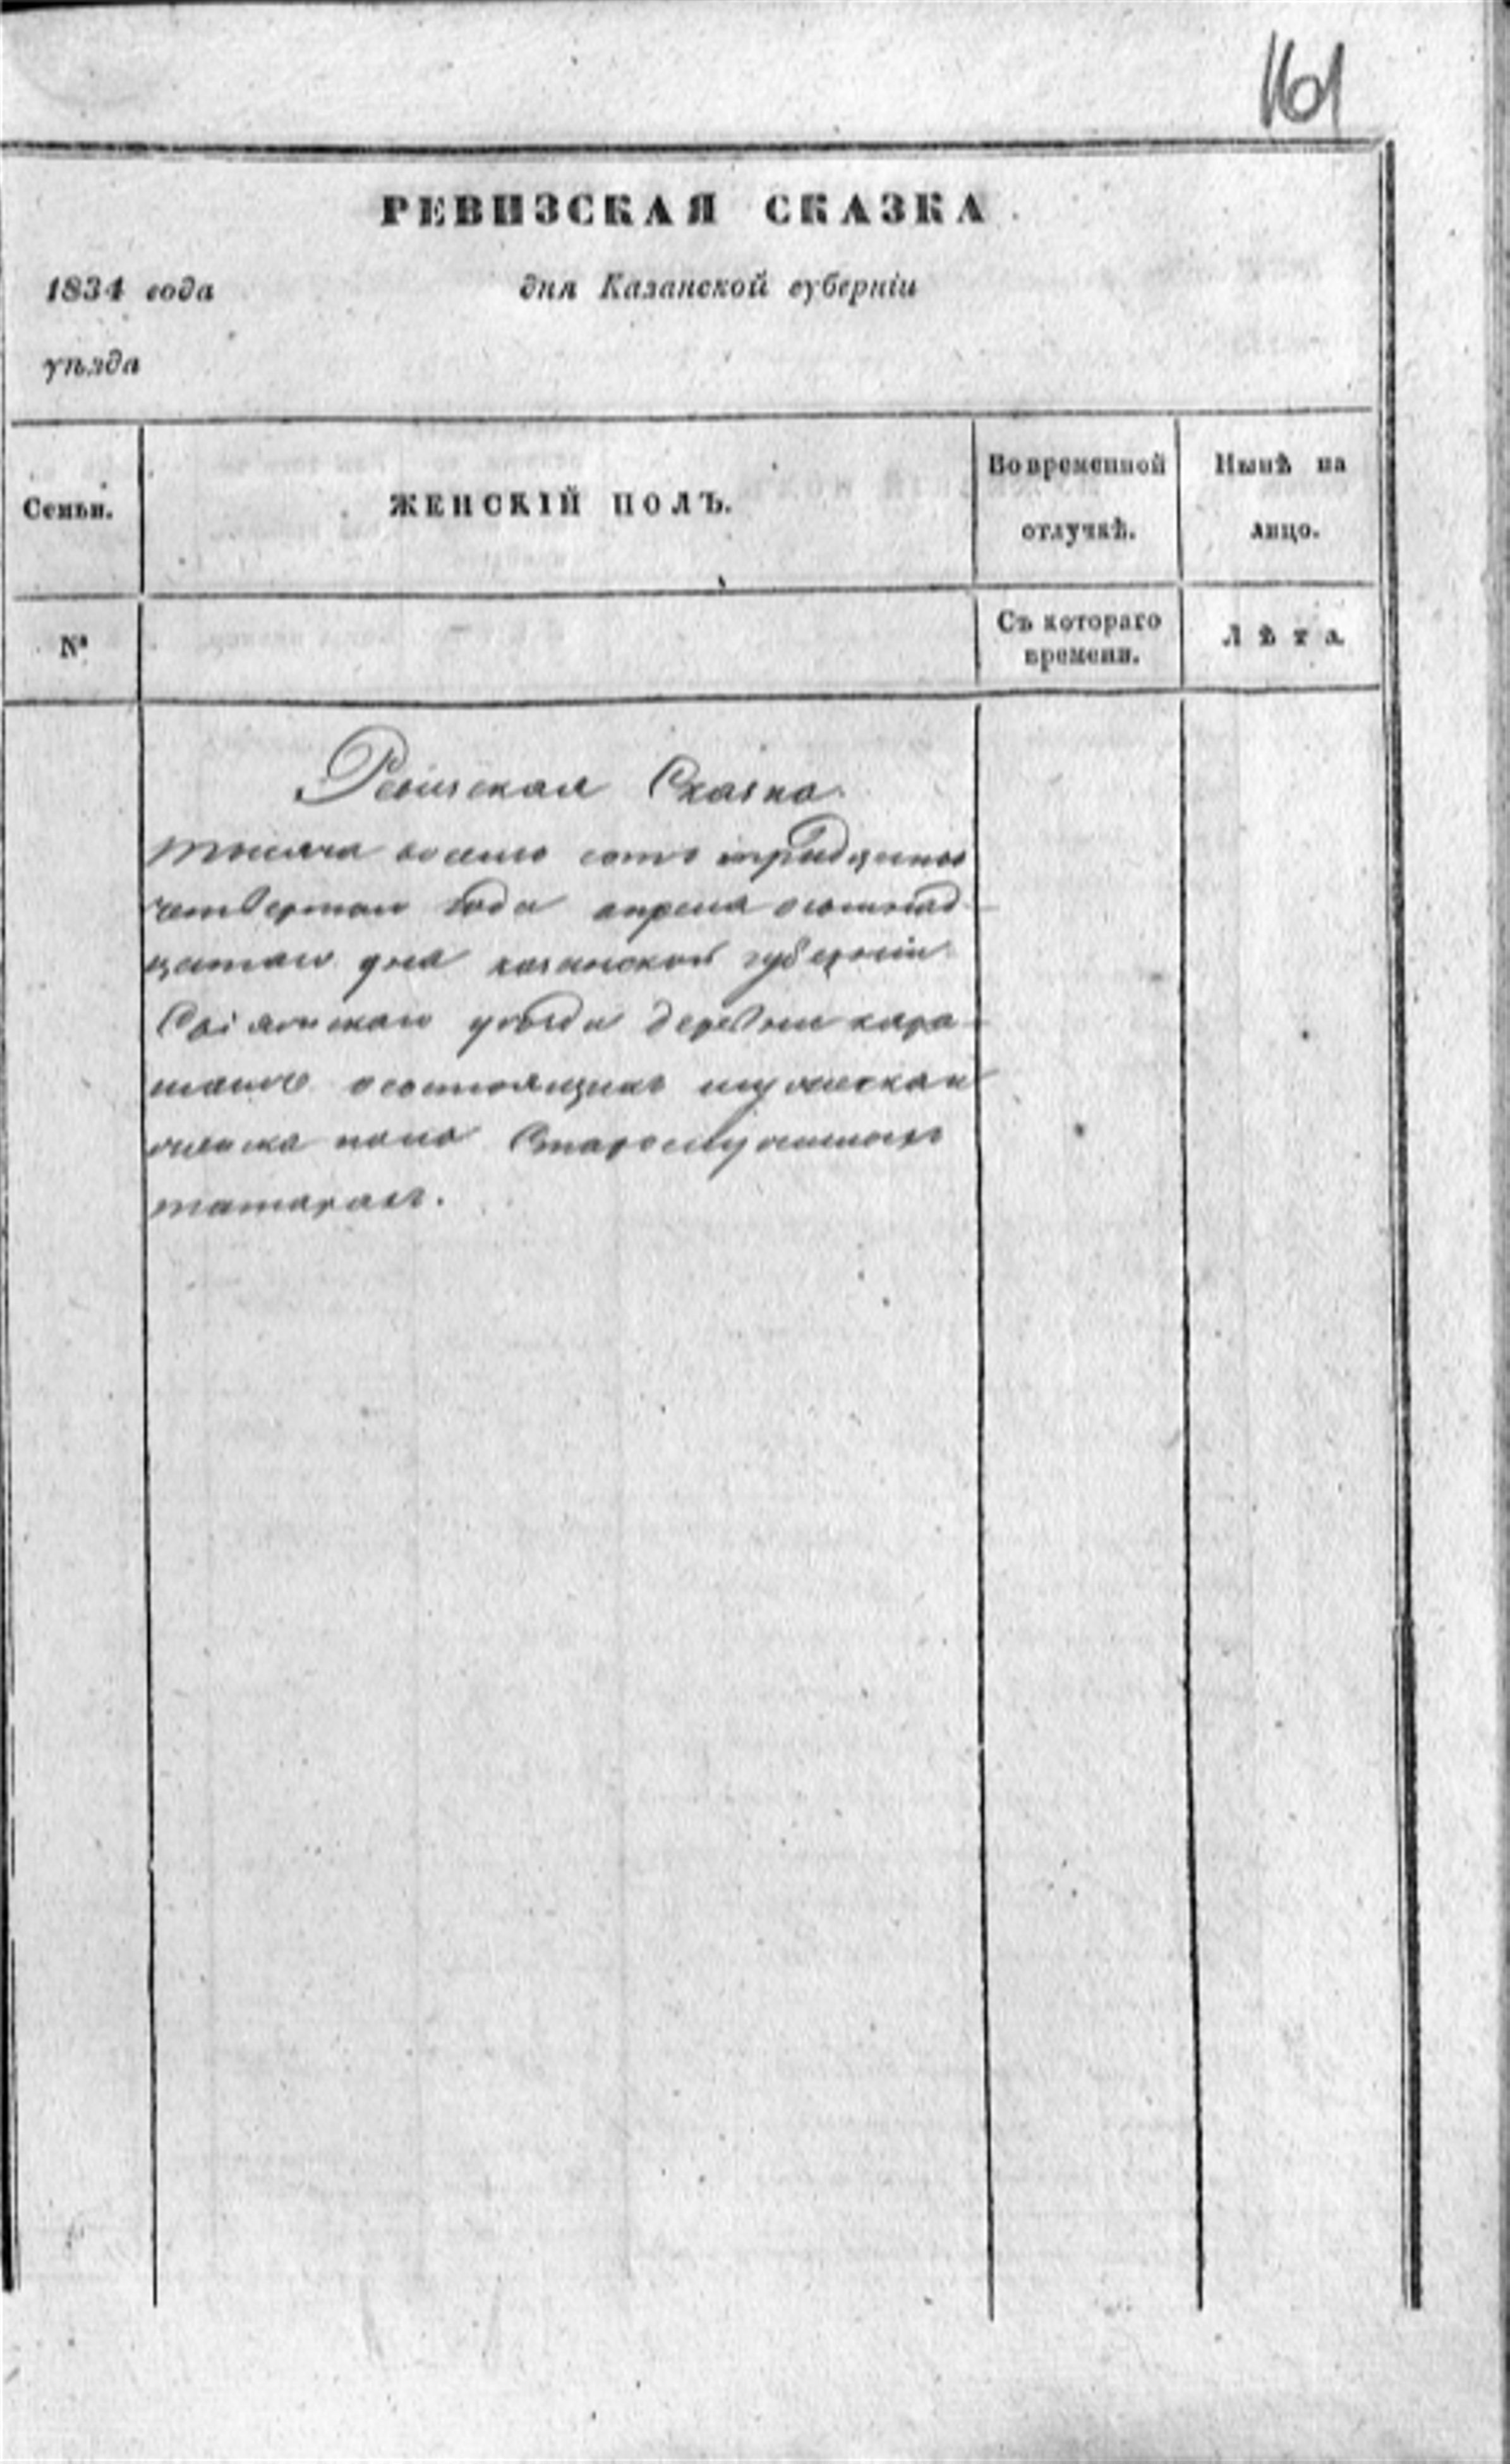 161
РЕВИЗСКАЯ СКАЗКА
1834 года дня Казанской губерніи
уѣзда
Семьи. ЖЕНСКІЙ ПОЛЪ. Во временной отлучкѣ. Нынѣ на лицо.
№ Съ котораго времени. Лѣта
Ревизская Сказка
тысяча восемь сотъ тридцать
четвертаго года апреля осьмнад
цатаго дня казанской губерніи
Свіяжскаго уѣзда деревни кара
о состоящихъ
Старослужилыхъ
татарахъ.